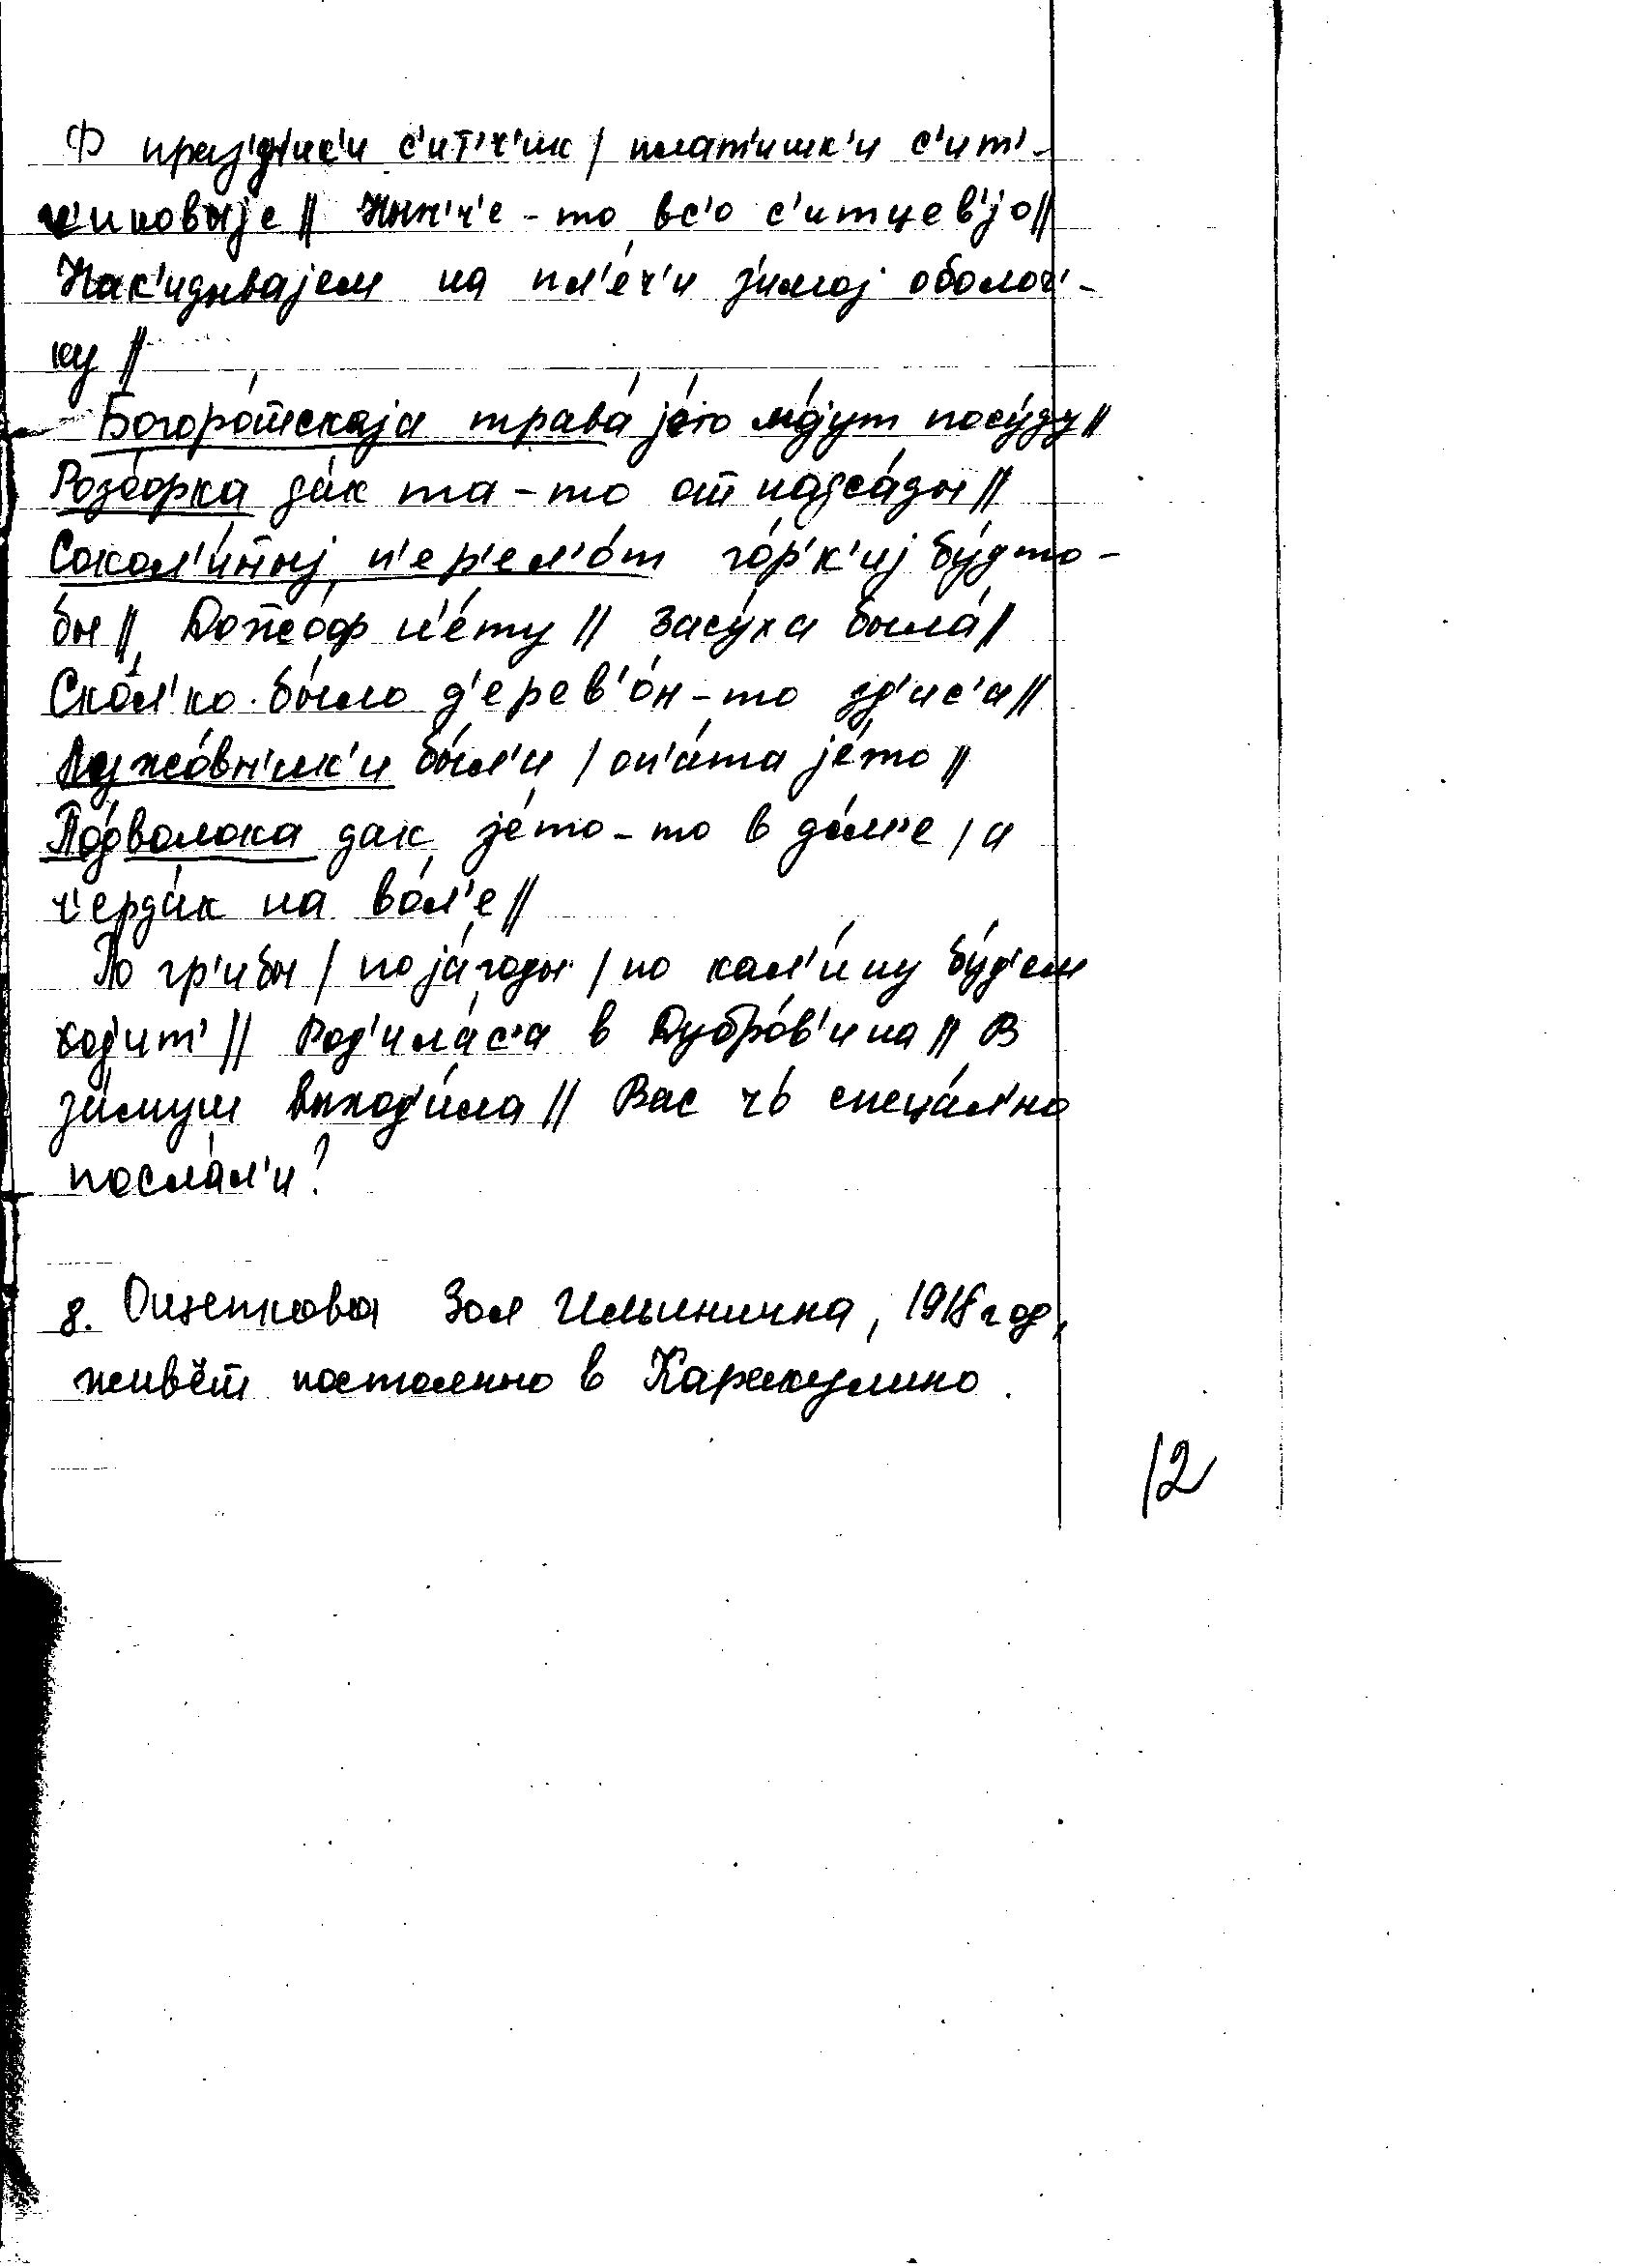 Ф праз'д'ник'и с'ит'ч'ик / плат'ишк'и с'ит'-
ч'иковыjе // Нын'ч'е-то вс'о с'итцев'jо //
Нак'идывајем на пл'е́ч'и з'имој оболоч'-
ку //
Богоро́тскаја трава́ је́то мо́јут посу́ду //
Розбо́рка да́к та-то от надса́ды //
Сокол'и́тныј п'ер'ел'о́т го́р'к'иј бу́дто-
бы // Дожжо́ф н'е́ту // За́суха была́ //
Ско́л'ко бы́ло д'ерев'о́н-то зд'ис'а //
Лужо́вн'ик'и бы́л'и / оп'а́та је́то //
По́дволока дак је́то-то в до́м'е / а
ч'ерда́к на во́л'е //
По гр'ибы / по jа́годы / по кал'и́ну бу́д'ем
ход'ит' // Род'ила́с'а в Дубро́в'ина // В
за́муш выход'и́ла // Вас чо́ специа́л'но
посла́л'и?
8. Зоя Ильинична, 1918 год,
живёт постоянно в Каракулино.
12